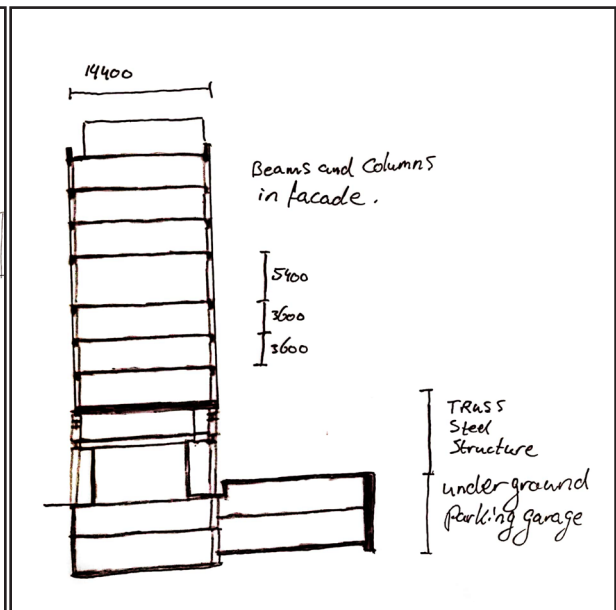 14400
Beams and Columns
in facade.
5400
3600
3600
TRUSS
Steel
Structure
underground
Parking garage